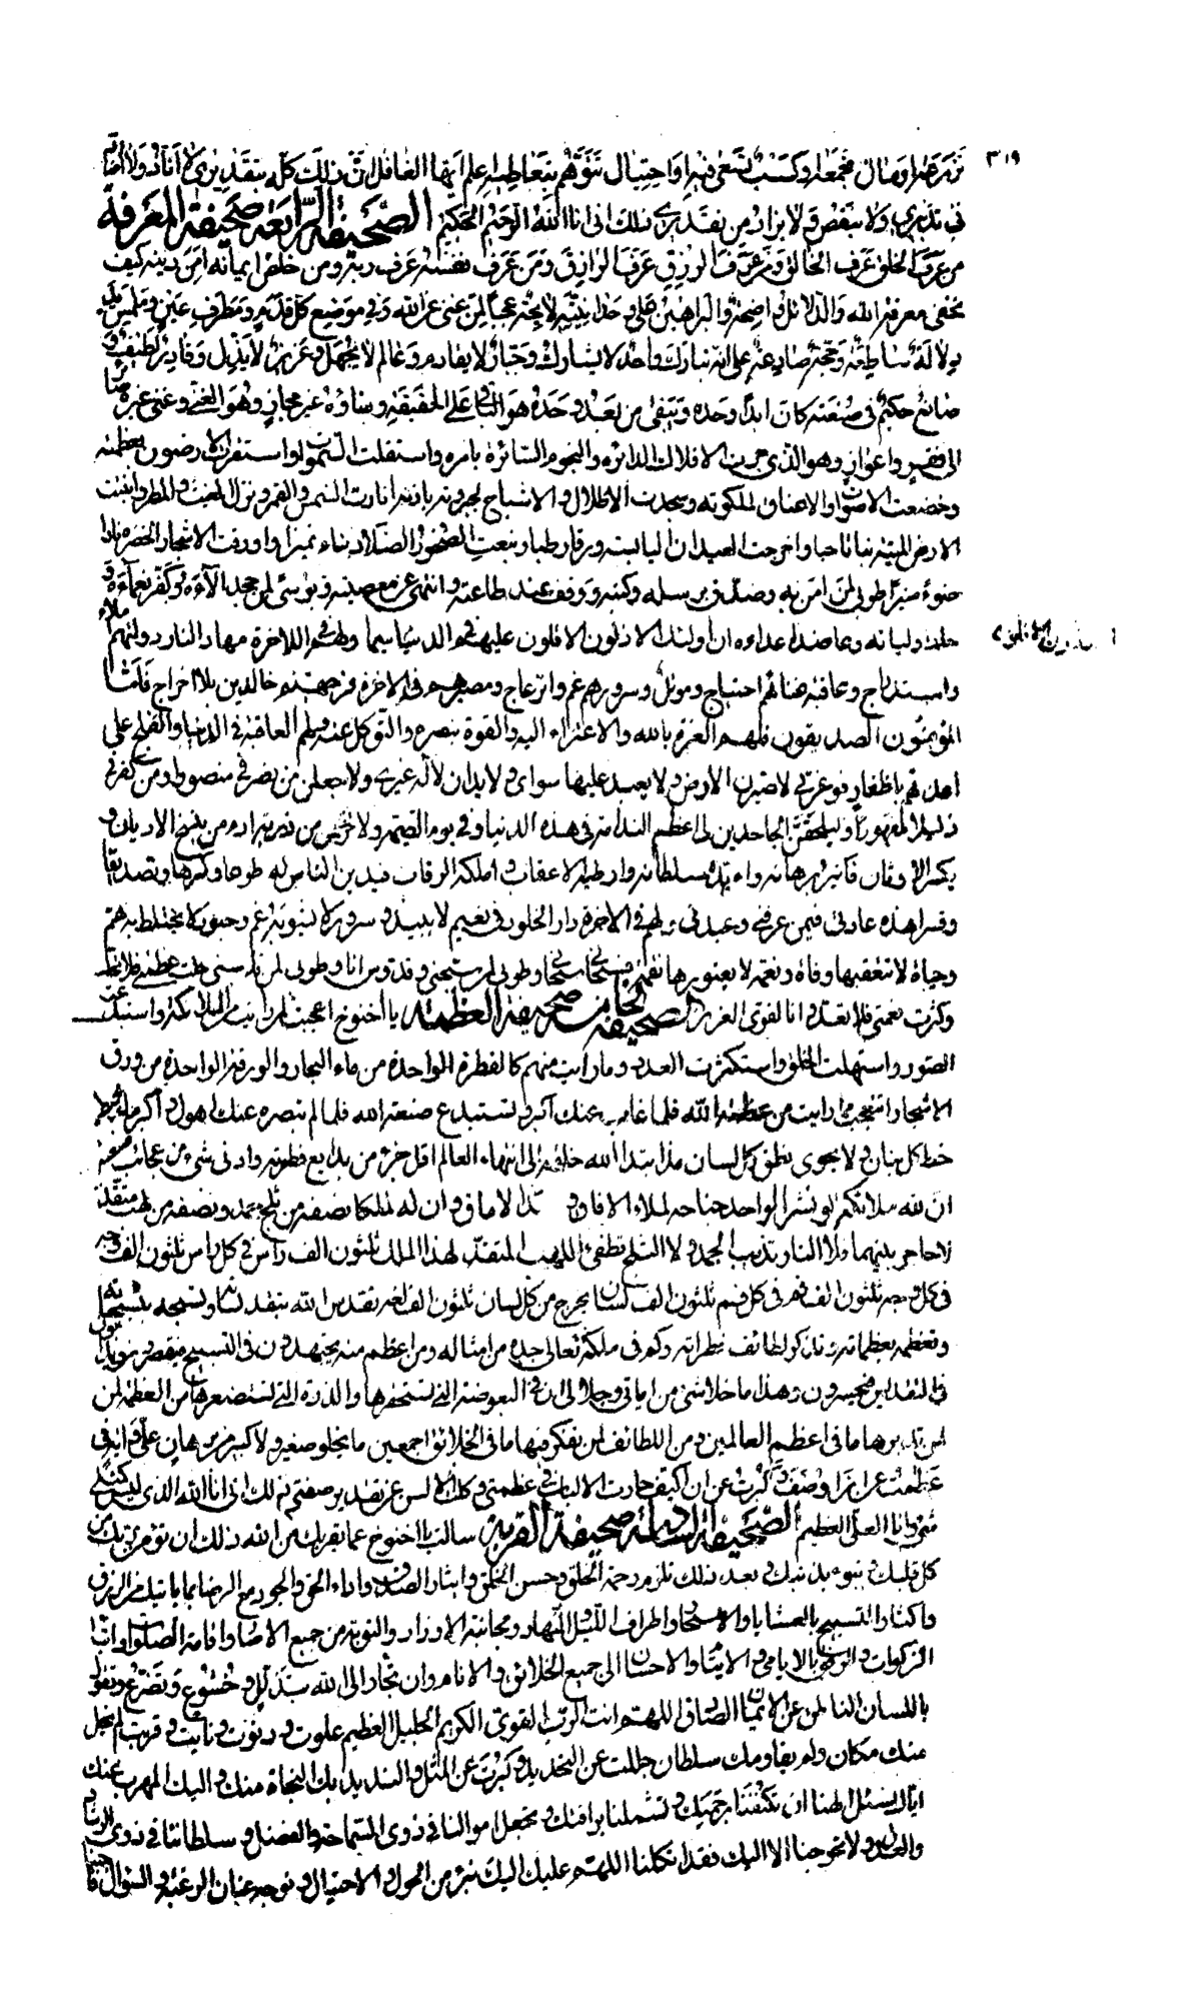 ٣١٩
تزرعها ومال تجمعه وكسب تسعى فيه واحتيال تتوهم بتعاطيه علم ايها الغافل ان ذلك كله بتقديرى لا
فى تدبيرى ولا ينقص ولا يزاد من تقديرى ذلك انى انا الله الرحيم الحكيم الصحيفة الرابعة صحيفة المعرفة
من عرف الخلق عرف الخالق ومن عرف الرزق عرف الرازق ومن عرف نفسه عرف ربه ومن خلص ايمانه امن دينه كيف
تخفى معرفة الله والدلائل واضحة والبراهين على وحدانيته لائحة عجبا لمن غنى عن الله وفى موضع كل قدم ومطرف عين وملمس يد
دلالة ساطعة وحجة صادعة على انه تبارك واحد لا يشارك وجبار لا يقاوم وعالم لا يجهل وعزيز لا يذل وقادر لطيف و
صانع حكيم فى صنعته كان ابدا وحده ويبقى من بعد وحده هو الباقى على الحقيقة وبقاؤه غير مجاز وهو الغنى وغنى غيره صائر
الى فقر واعواز وهو الذى جرت الافلاك الدائرة والنجوم السائرة بامره واستقلت السموات واستقرت الارضون بعظمته
وخضعت الاصوات والاعناق لملكوته وسجدت الاظلال والاشباح لجبروته باذنه انارت الشمس والقمر ونزل الغيث والمطر وانبتت
الارض الميتة نباتا حيا واخرجت العيدان اليابسة ورقا رطبا ونبعت الصخور الصلاد بماء نميرا واورقت الاشجار الخضرة نارا
ضوء منيرا طوبى لمن امن به وصدق برسله وكتبه ووقف عند طاعته وانتهى عن معصيته وبؤسى لمن جحد الآءه وكفر نعماءه و
حاد اولياءه وعاضد اعداءه ان اولئك الاذلون الاقلون عليهم فى الدنيا سيما ولهم فى الاخرة مهاد النار دولتهم املاء
واستدراج وعاقبة غناهم احتياج وموئل سرورهم غم وانزعاج ومصيرهم فى الاخرة فى جهنم خالدين بلا اخراج فاما
المؤمنون الصديقون فلهم العزة بالله والاعتزاء اليه والقوة بنصره والتوكل عليه ولهم العاقبة فى الدنيا والفلج على
اعدائهم باظفار فوعزتى لاصيرن الارض ولا يعبد عليها سواى ولا يدان لاله غيرى ولاجعلن من نصرنى منصورا ومن كفرنى
ذليلا مقهورا وليلحقن الجاحدين لى اعظم الندامة فى هذه الدنيا وفى يوم القيمة ولاخرجن من ذرية ادم من ينسخ الاديان و
يكسر الاوثان فانير برهانه واؤيد سلطانه واوطيه الاعقاب واملكه الرقاب فيدين الناس له طوعا وكرها وتصديقا
وقسرا هذه عادتى فيمن عرفنى وعبدنى ولهم فى الاخرة دار الخلود فى نعيم لا يبيد وسرور لا يشوبه غم وحبور لا يختلط به هم
وحياة لا تتعقبها وفاة ونعمة لا يعتورها نقمة فسبحانى سبحانى وطوبى لمن سبحنى وقدوس انا وطوبى لمن قدسنى جلت عظمتى فلا تحد
وكثرت نعمتى فلا تعد وانا القوى العزيز الصحيفة الخامسة صحيفة العظمة يا اخنوخ اعجبت لمن رايت من الملائكة واستبدعت
الصور واستهلت الخلق واستكثرت العدد وما رايت منهم كالقطرة الواحدة من ماء البحار والورقة الواحدة من ورق
الاشجار اتتعجب مما رايت من عظمة الله فلما غاب عنك اكبر وتستبدع صنعة الله فلما لم تبصره عنك اهول واكبر ما يحيط
خط كل بنان ولا يحوى نطق كل لسان مذ ابتدا الله خلقه الى انتهاء العالم اقل جزء من بدايع فطرته وادنى شىء من عجائب صنعته
ان لله ملائكة لو نشر الواحد جناحه لملا الافاق وسد الاماق وان له لملكا نصفه من ثلج جمد ونصفه من لهب متقد
لا حاجز بينهما فلا النار تذيب الجمد ولا الثلج يطفئ اللهب المتقد لهذا الملك ثلثون الف راس فى كل راس ثلثون الف وجه
فى كل وجه ثلثون الف فم فى كل فم ثلثون الف لسان يخرج من كل لسان ثلثون الف لغة تقدس الله بتقديساته وتسبحه بتسبيحاته
وتعظمه بعظماته وتذكر لطائف فطراته وكم فى ملكه تعالى جده من امثاله ومن اعظم منه يجتهدون فى التسبيح فيقصرون ويدأبون
فى التقديس فيحسرون وهذا ما خلا شىء من اياتى وجلالى ان فى البعوضة التى تستحقرها والذرة التى تستصغرها من العظمة لمن
لمن تدبرها ما فى اعظم العالمين ومن اللطائف لمن تفكر فيها ما فى الخلائق اجمعين ما يخلو صغير ولا كبير من برهان على واية فى
عظمت عن ان اوصف وكبرت عن ان اكيف حارت الالباب فى عظمتى وكلت الالسن عن تقدير صفتى ذلك انى انا الله الذى ليس كمثلى
شىء وانا العلى العظيم الصحيفة السادسة صحيفة القربة سالت يا اخنوخ عما يقربك من الله ذلك ان تؤمن بربك من
كل قلبك وتبوء بذنبك وبعد ذلك تلزم رحمة الخلق وحسن الخلق وايثار الصدق واداء الحق والجود مع الرضا بما ياتيك من الرزق
واكثار التسبيح بالعشايا والاسحار واطراف الليل والنهار ومجانبة الاوزار والتوبة من جميع الاصار واقامة الصلوات وايتاء
الزكوات والرفق بالايامى والايتام والاحسان الى جميع الخلائق والانام وان تجار الى الله بتذلل وخشوع وتضرع وتقول
باللسان الناطق عن الايمان الصادق اللهم انت الرب القوى الكريم الجليل العظيم علوت ودنوت ونايت وقربت لم يخل
منك مكان ولم يقاومك سلطان جللت عن التحديد وكبرت عن المثل والنديد بك النجاة منك واليك المهرب عنك
اياك نسئل الهنا ان تكنفنا برحمتك وتشملنا برافتك وتجعل اموالنا فى ذوى السماحة والفضل وسلطاننا فى ذوى الرشاد
والعدل ولا تحوجنا الا اليك فقد اتكلنا اللهم عليك اليك نبرء من الحول والاحتيال ونوجه عنان الرغبة والسؤال فاجبنا